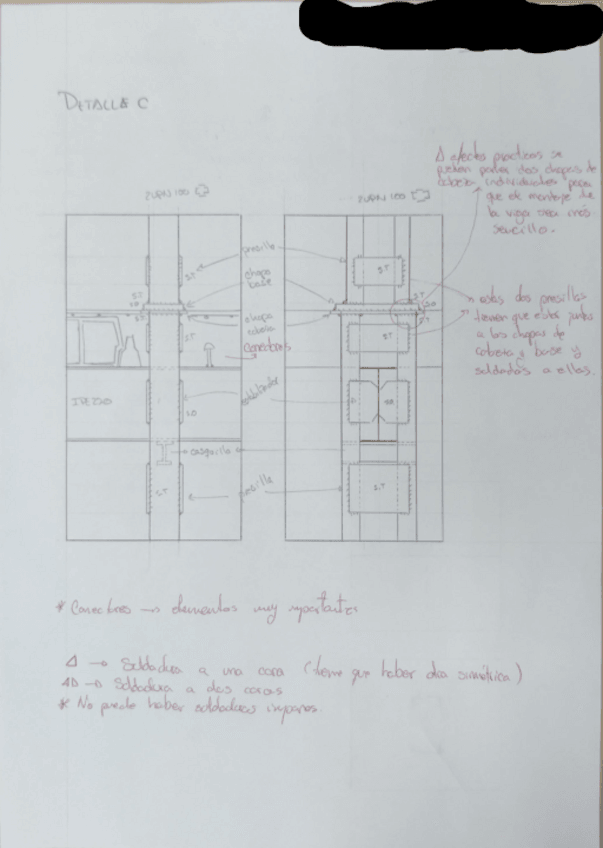 DETALLE C
A efectos practicos se
pueden poner dos chapas de
cabeza individuales para
que el montaje de
la viga sea más
sencillo.
2UPN 100
2UPN 100
presilla
S.T
S.T
chapa
base
S.T
S.T
chapa
cabeza
S.T
S.T
S.T
conectores
estas dos presillas
tienen que estar juntas
a las chapas de
cabeza y base y
soldadas a ellas.
casquillo
S.T
presilla
S.T
* Conectores → elementos muy importantes
Δ → Soldadura a una cara (tiene que haber otra simétrica)
→ Soldadura a dos caras
* No puede haber soldaduras impares.